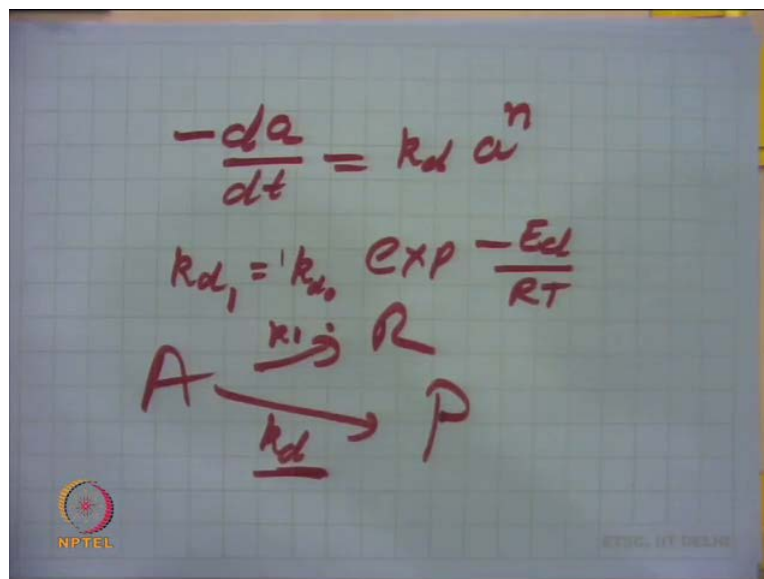 -da/dt = kd a^n
kd1 = kd0 exp -Ed/RT
A k1 → R
kd → P
NPTEL
ETSC, IIT DELHI